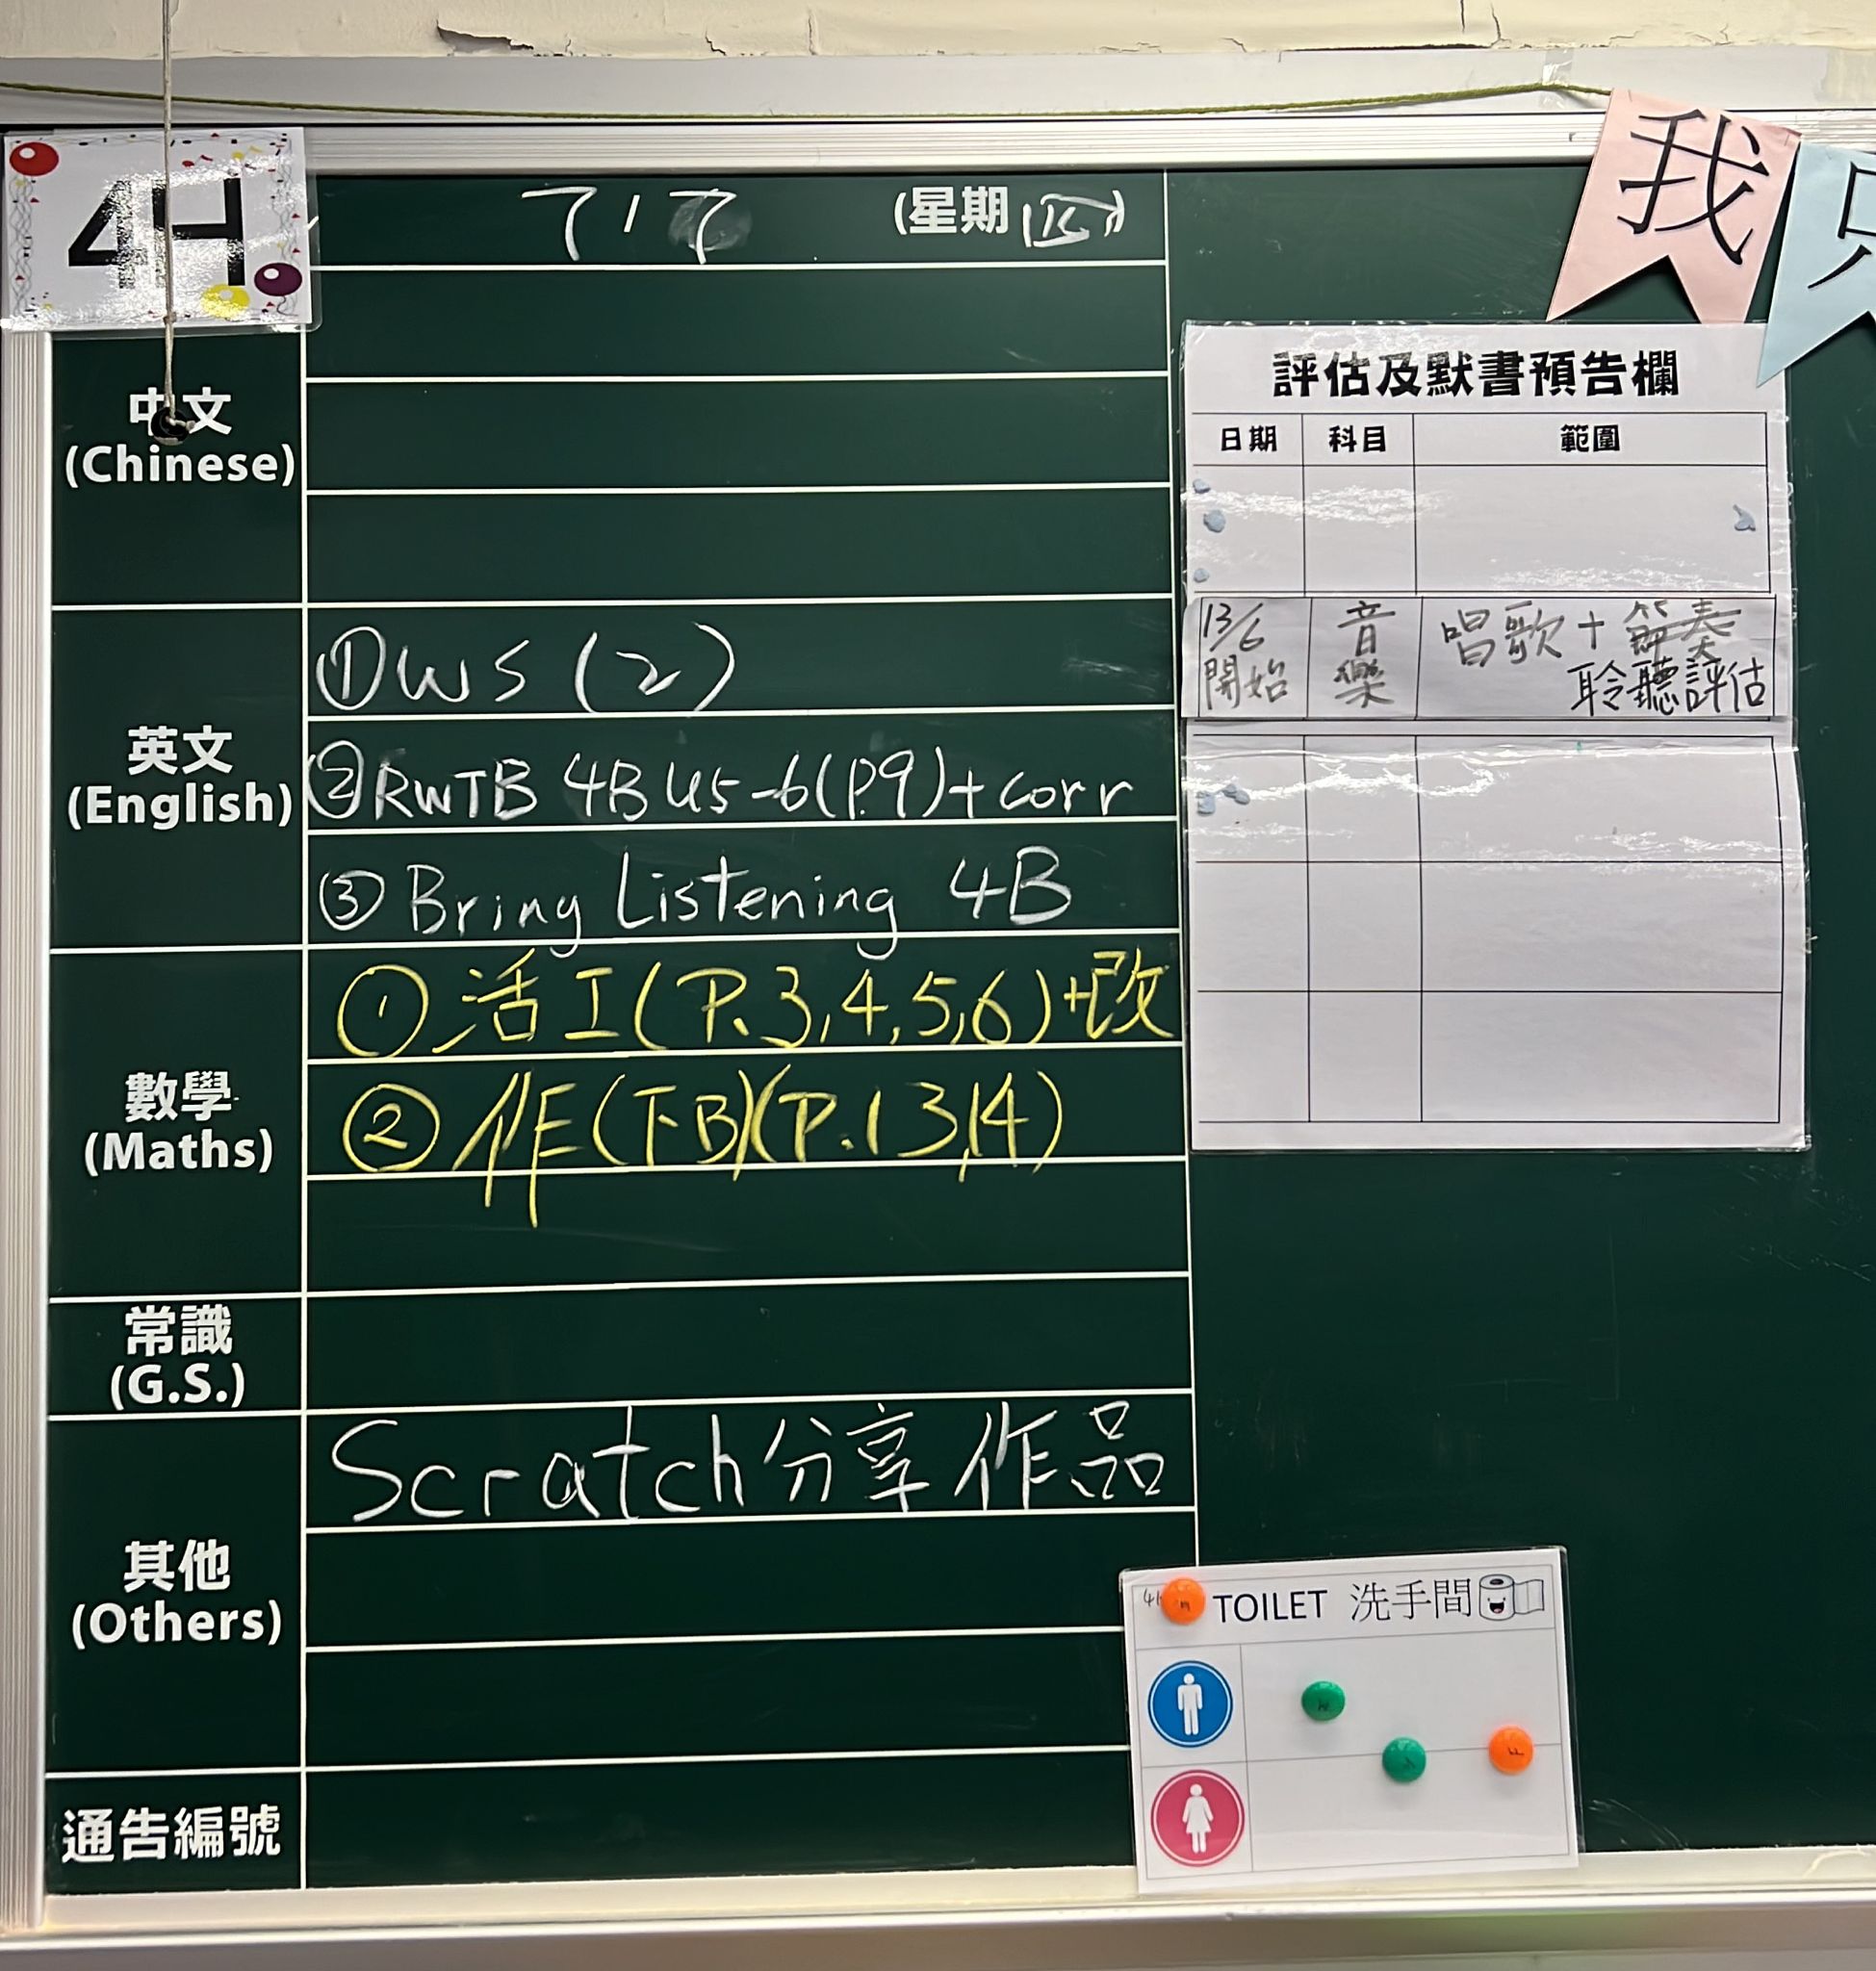 4H
7 / 7 (星期四)
我
中文
(Chinese)
英文
(English)
① WS (2)
② RWTB 4B U5-6(P.9)+corr
③ Bring Listening 4B
數學
(Maths)
① 活工(P.3,4,5,6)+改
② 作(下B)(P.13,14)
常識
(G.S.)
其他
(Others)
Scratch分享作品
通告編號
評估及默書預告欄
日期 科目 範圍
13/6 開始 音樂 唱歌+節奏
聆聽評估
TOILET 洗手間